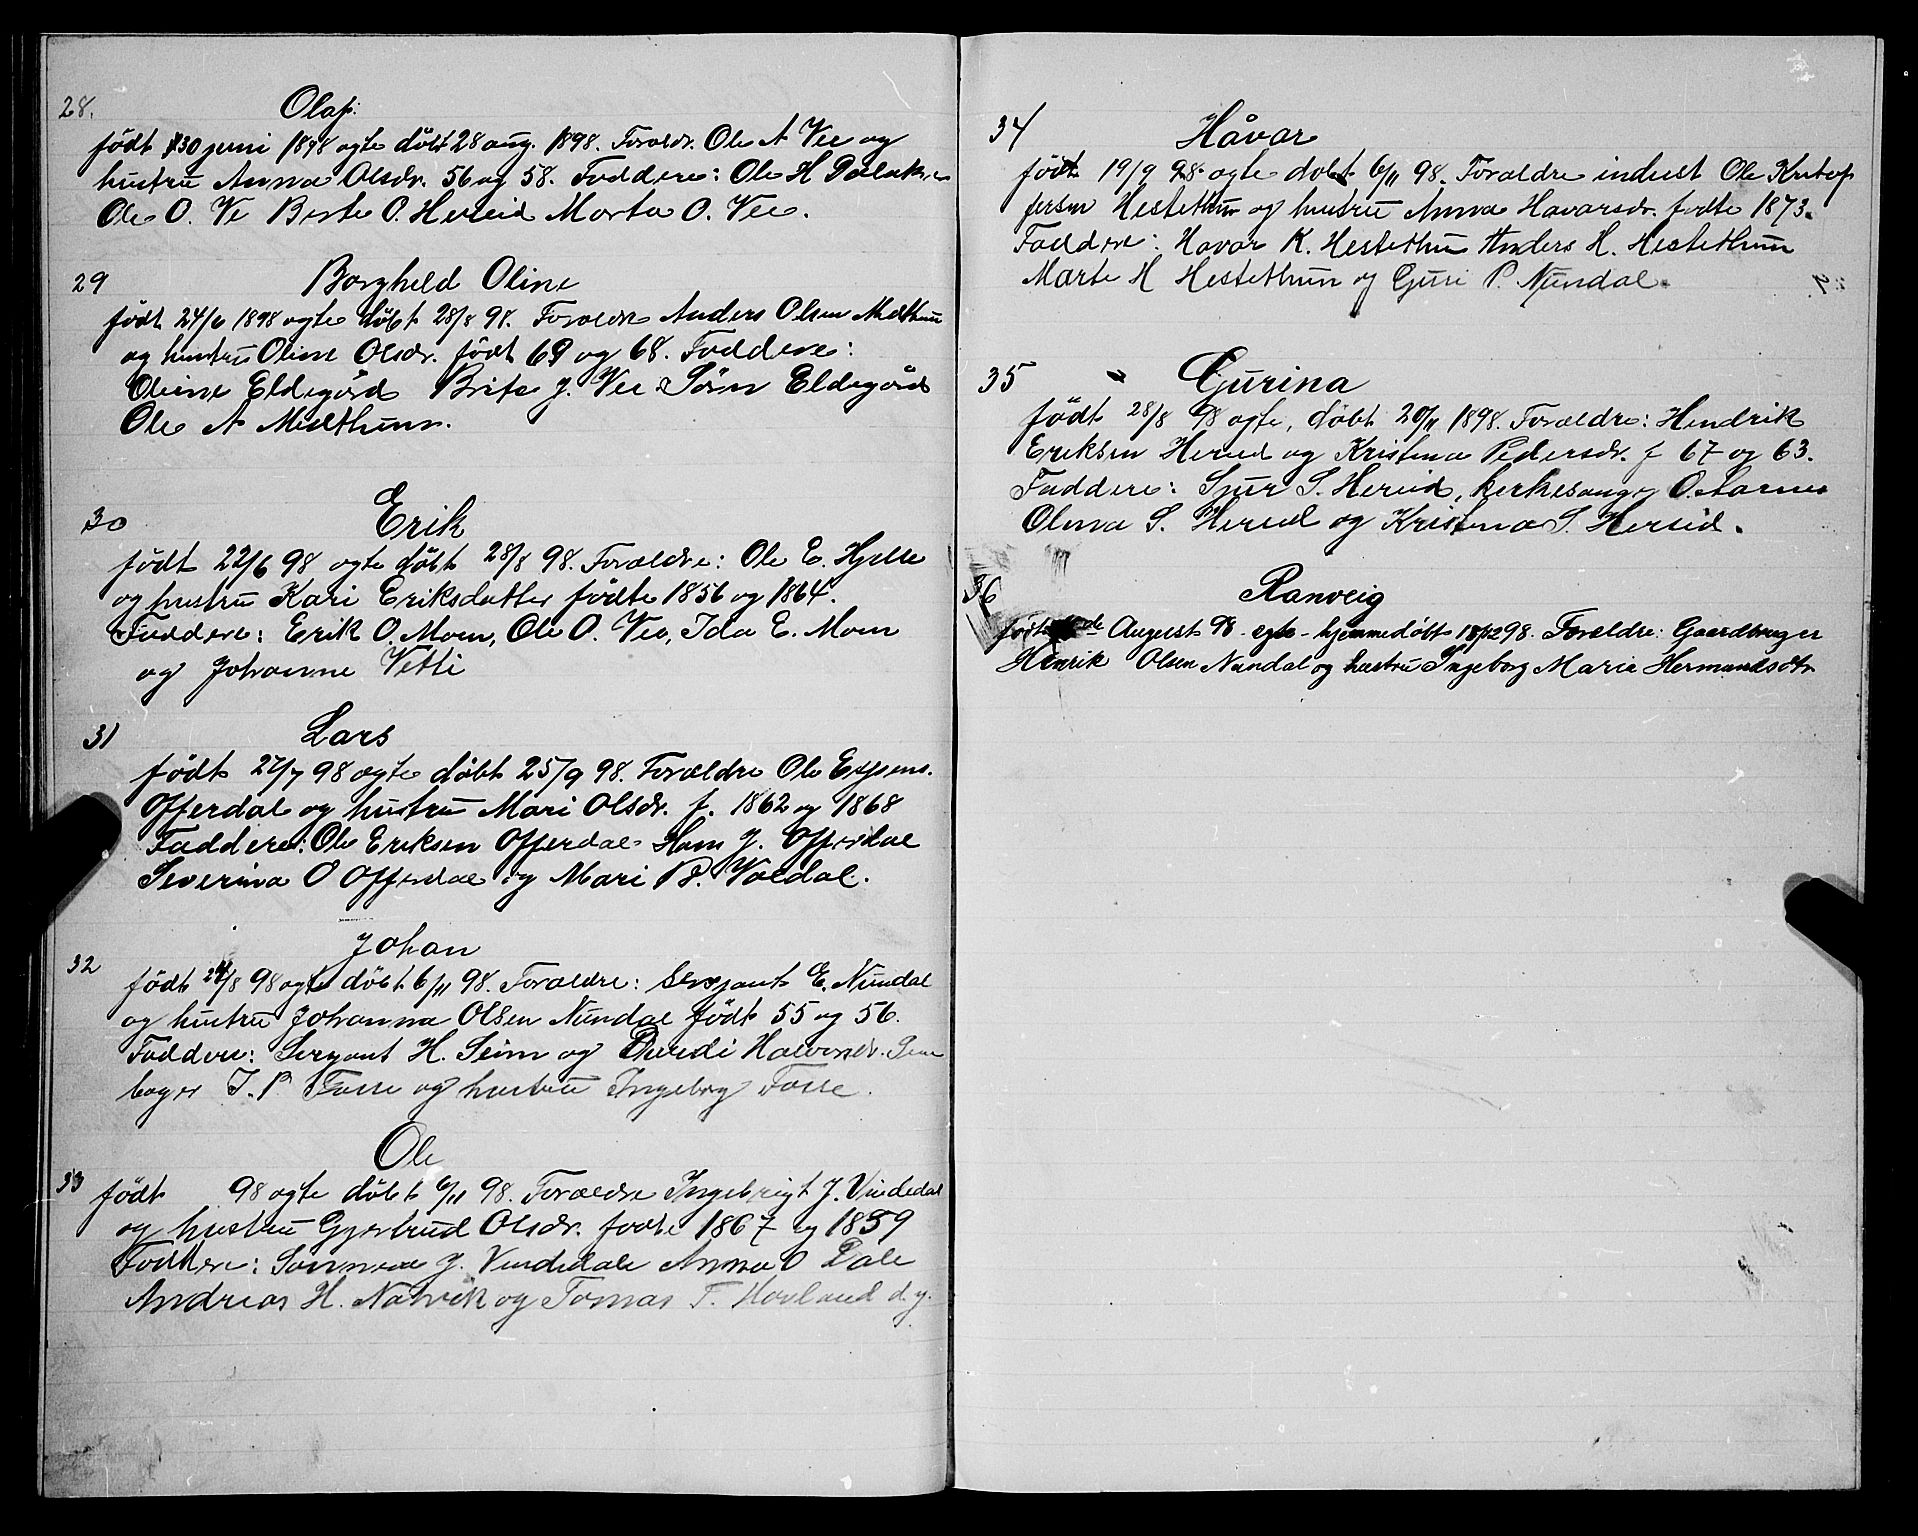 28. Olaf.
født 30 juni 1898 ogte døbt 28 aug. 1898. Foraldr. Ole A Vee og
hustru Anna Olsdr. 56 og 58. Faddere: Ole H
Ole O. Ve Berte O. Hereid Marta O. Vee.
29 Borghild Oline
født 24/6 1898 ogte døbt 28/8 98. Foraldre Anders Olsen Melthun
og hustru Oline Olsdr. født 69 og 68. Faddere:
Oline Eldegård Brita J. Vee Eldegård
Ole A Melthun.
30 Erik
født 22/6 98 ogte døbt 28/8 98. Foraldre: Ole E. Hjelle
og hustru Kari Eriksdatter fødte 1856 og 1864.
Faddere: Erik O. Moen, Ole O. Vee, Ida E. Moen
og Johanne Vetti
31 Lars
født 27/7 98 ogte døbt 25/9 98. Foraldre Ole
Offerdal og hustru Mari Olsdr. f. 1862 og 1868
Faddere: Ole Eriksen Offerdal Hans J. Offerdal
Severina O Offerdal og Mari P. Voldal.
32 Johan
født 24/8 98 ogte døbt 6/11 98. Foraldre: Serjant E. Nundal
og hustru Johanna Olsen Nundal født 55 og 56.
Faddere: Serjant H. Seim og
I. P. Fosse og hustru Ingeborg Fosse.
33 Ole
født 98 ogte døbt 6/11 98. Foraldre Ingebrigt J. Vindedal
og hustru Gjertrud Olsdr. fødte 1867 og 1859
Faddere: J. Vindedal Anna O Dale
Andreas H. Natvik og Tomas T. Hovland d.y.
34 Håvar
født 19/9 98 ogte døbt 6/11 98. Foraldre indust Ole Kristof
fersen Hestethun og hustru Anna Havarsdr. fødte 1873.
Faddere: Havar K. Hestethun Anders H. Hestethun
Marte H Hestethun og Guri P. Nundal.
35 Gurina
født 28/8 98 ogte, døbt 20/11 1898. Foraldre: Hendrik
Eriksen Hereid og Kristina Pedersdr. f 67 og 63.
Faddere: Sjur S. Hereid, kirkesanger O. Aarnes
Olina S. Hereid og Kristina S. Hereid.
36 Ranveig
født de August 98 - egte - hjemmedøbt 18/12 98. Forældre: Gaardbruger
Henrik Olsen Nundal og hustru Ingeborg Marie Hermundsdtr.